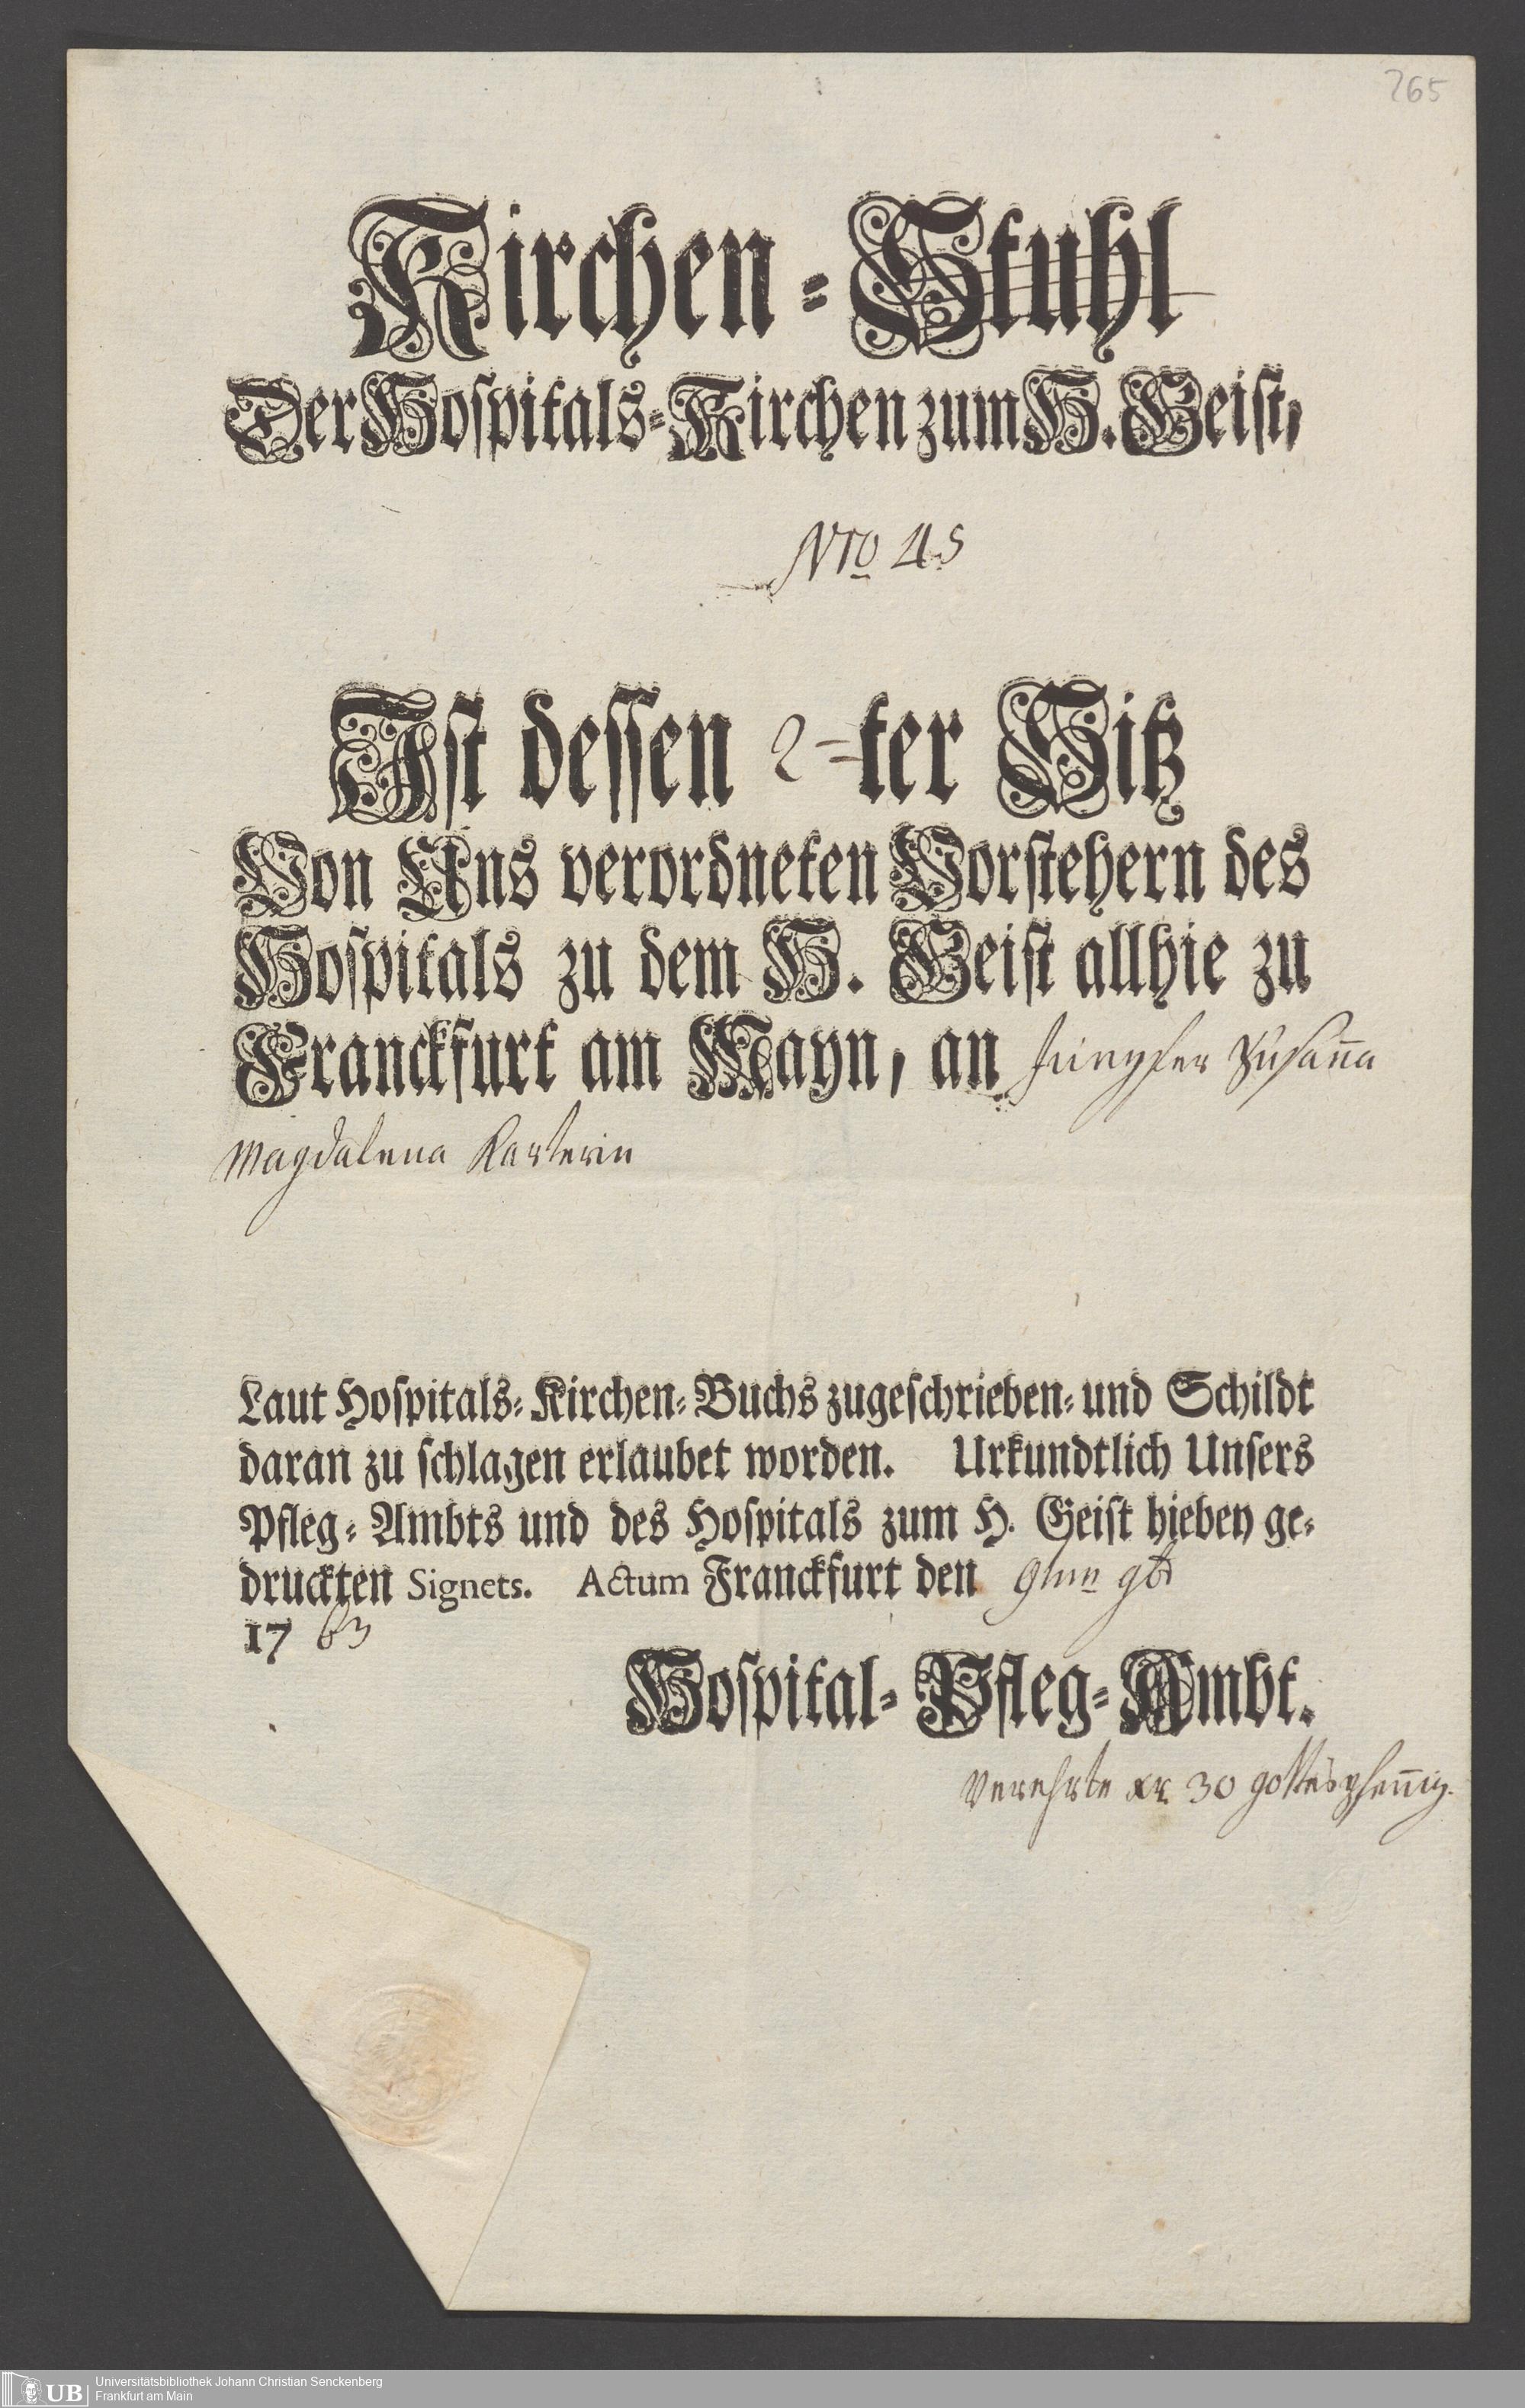 265
Kirchen-Stuhl
Der Hospitals-Kirchen zum H. Geist,
No 45
Ist dessen 2=ter Sitz
Von Uns verordneten Vorstehern des
Hospitals zu dem H. Geist allhie zu
Franckfurt am Mayn, an Jungfer Susanna
Magdalena
Laut Hospitals-Kirchen-Buchs zugeschrieben- und Schildt
daran zu schlagen erlaubet worden. Urkundtlich Unsers
Pfleg-Ambts und des Hospitals zum H. Geist hiebey ge-
druckten Signets. Actum Franckfurt den 9ten
1763
Hospital-Pfleg-Ambt.
Verehrte xr. 30 gottespfennig.
UB
Universitätsbibliothek Johann Christian Senckenberg
Frankfurt am Main